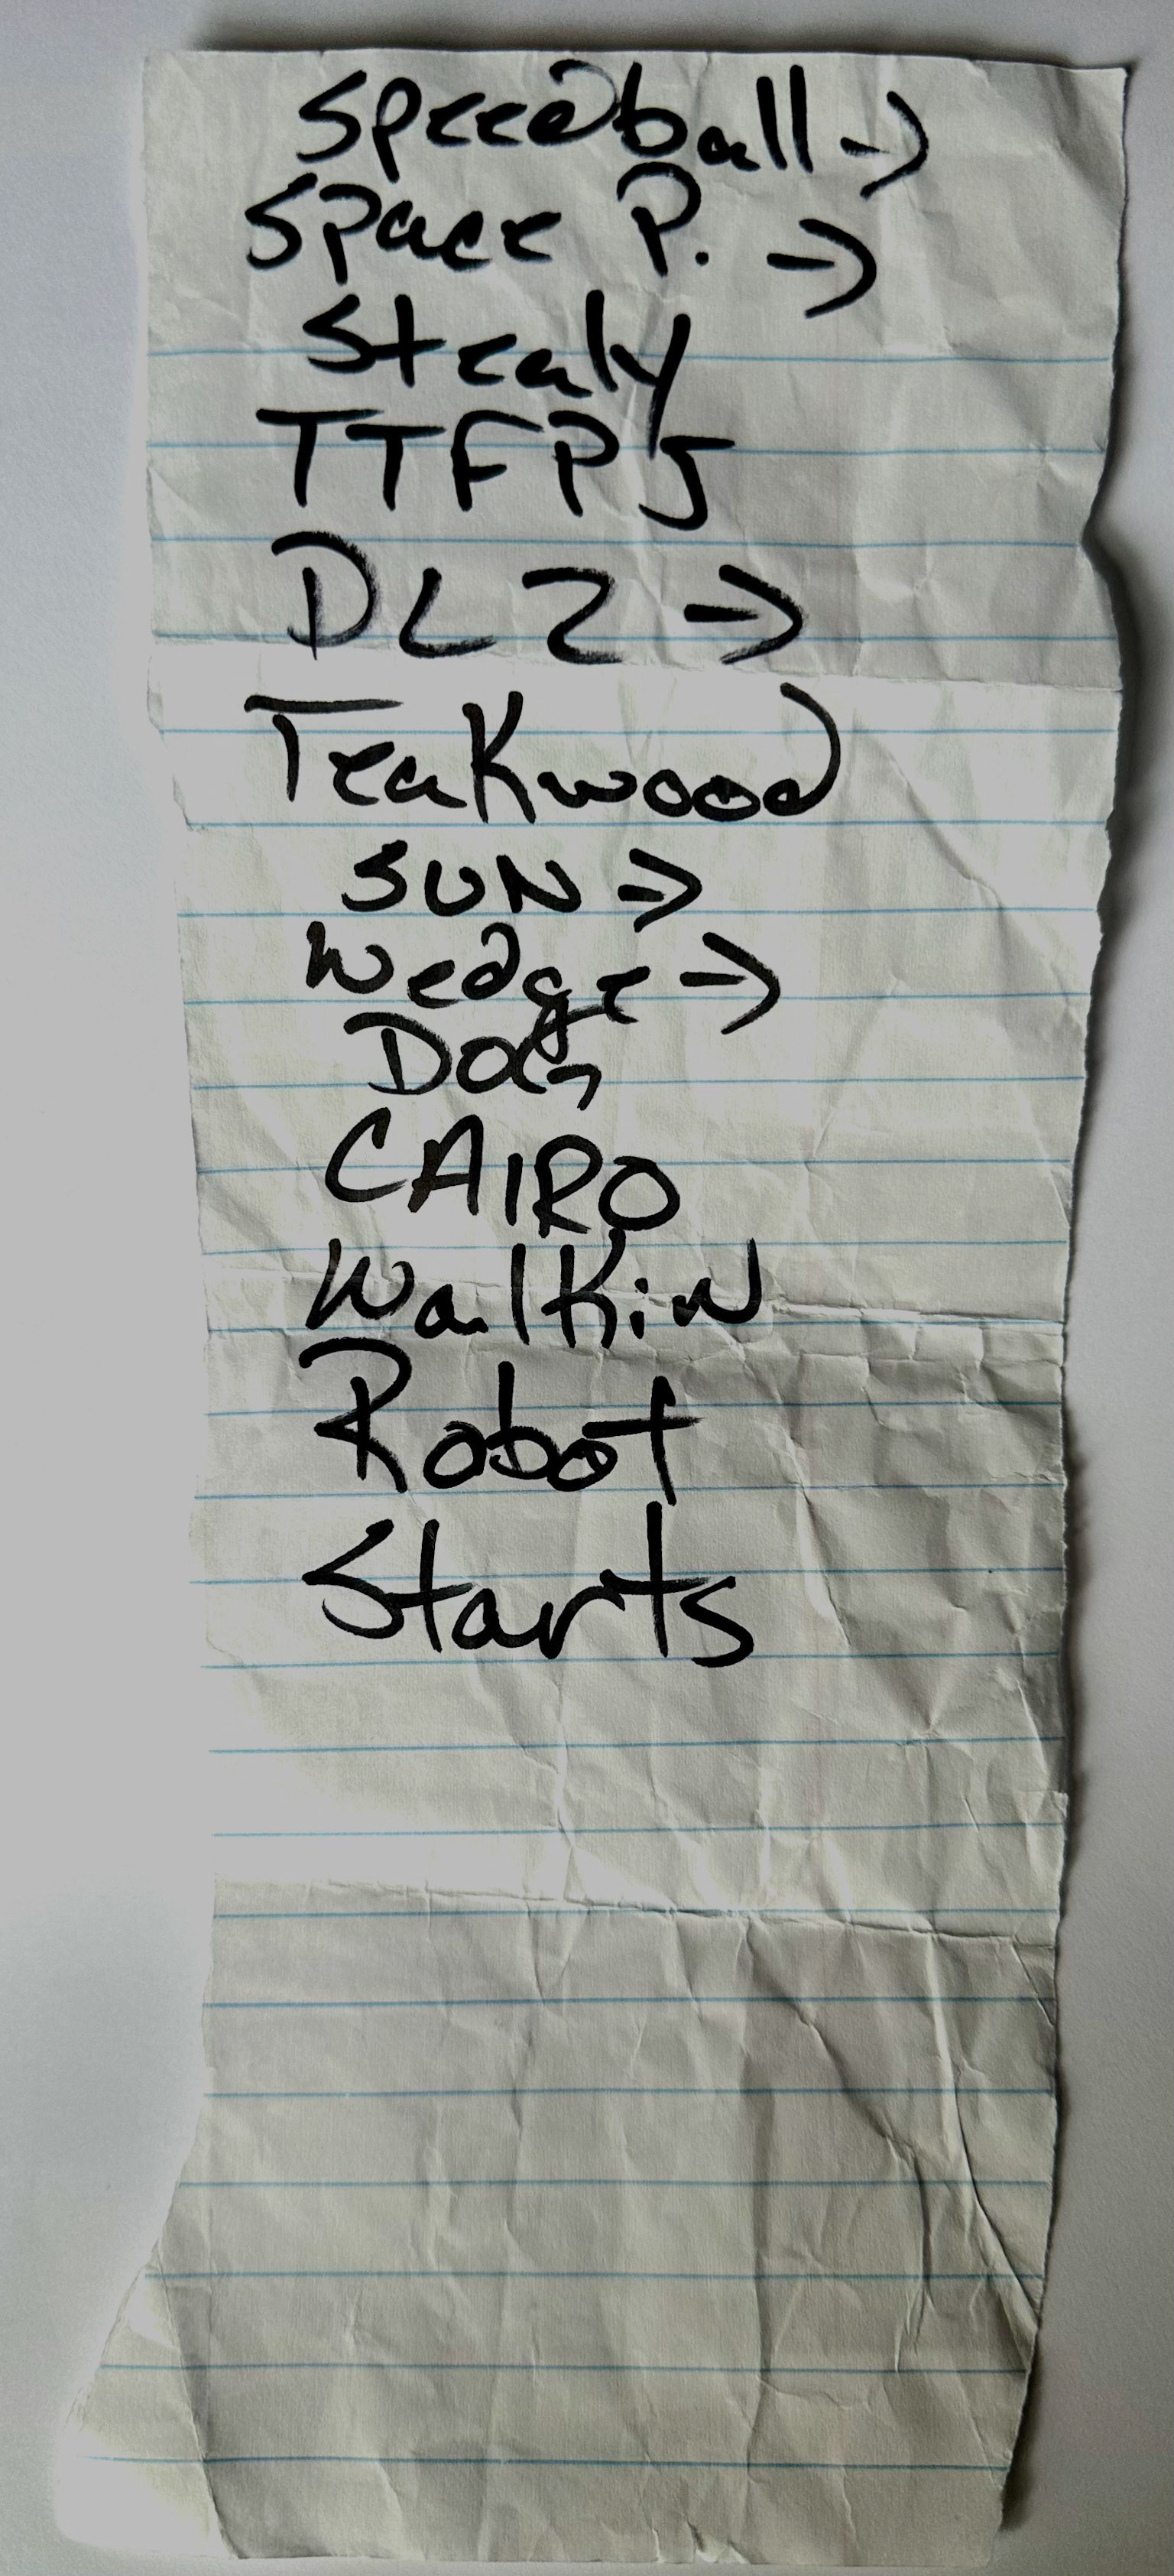 Speedball ->
Space P. ->
Stealy
TTFPJ
DLZ ->
Teakwood
SUN =>
Wedge ->
Dog
CAIRO
Walkin
Robot
Starts